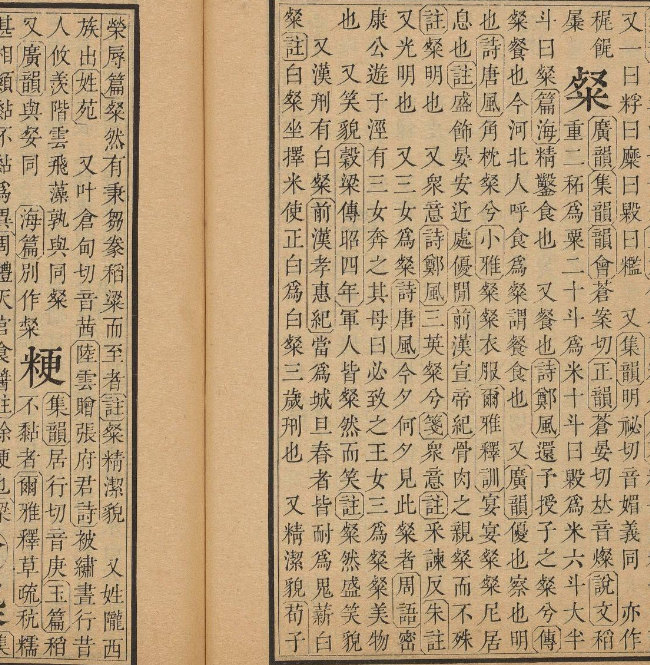 又一曰粰曰糜曰毇曰糮 又集韻明祕切音媚義同 亦作
䊧䬛
粲
廣韻集韻韻會蒼案切正韻蒼晏切𠀤音燦說文稻
重二秙爲粟二十斗爲米十斗曰毇爲米六斗大半
斗曰粲篇海精鑿食也 又餐也詩鄭風還予授子之粲兮傳
粲餐也今河北人呼食爲粲謂餐食也 又廣韻優也察也明
也詩唐風角枕粲兮小雅粲粲衣服爾雅釋訓宴宴粲粲尼居
息也註盛飾晏安近處優閒前漢宣帝紀骨肉之親粲而不殊
註粲明也 又衆意詩鄭風三英粲兮箋衆意註釆諫反朱註
又光明也 又三女爲粲詩唐風今夕何夕見此粲者周語密
康公遊于涇有三女奔之其母曰必致之王女三爲粲粲美物
也 又笑貌穀梁傳昭四年軍人皆粲然而笑註粲然盛笑貌
又漢刑有白粲前漢孝惠紀當爲城旦舂者皆耐爲鬼薪白
粲註白粲坐擇米使正白爲白粲三歲刑也 又精潔貌荀子
榮辱篇粲然有秉芻豢稻粱而至者註粲精潔貌 又姓隴西
族出姓苑 又叶倉甸切音茜陸雲贈張府君詩被繡晝行昔
人攸羨階雲飛藻孰與同粲
粳
集韻居行切音庚玉篇稻
又廣韻與㛑同 海篇別作㛑
不黏者爾雅釋草疏秔糯
甚相類黏不黏爲異周禮天官食醫註稌粳也